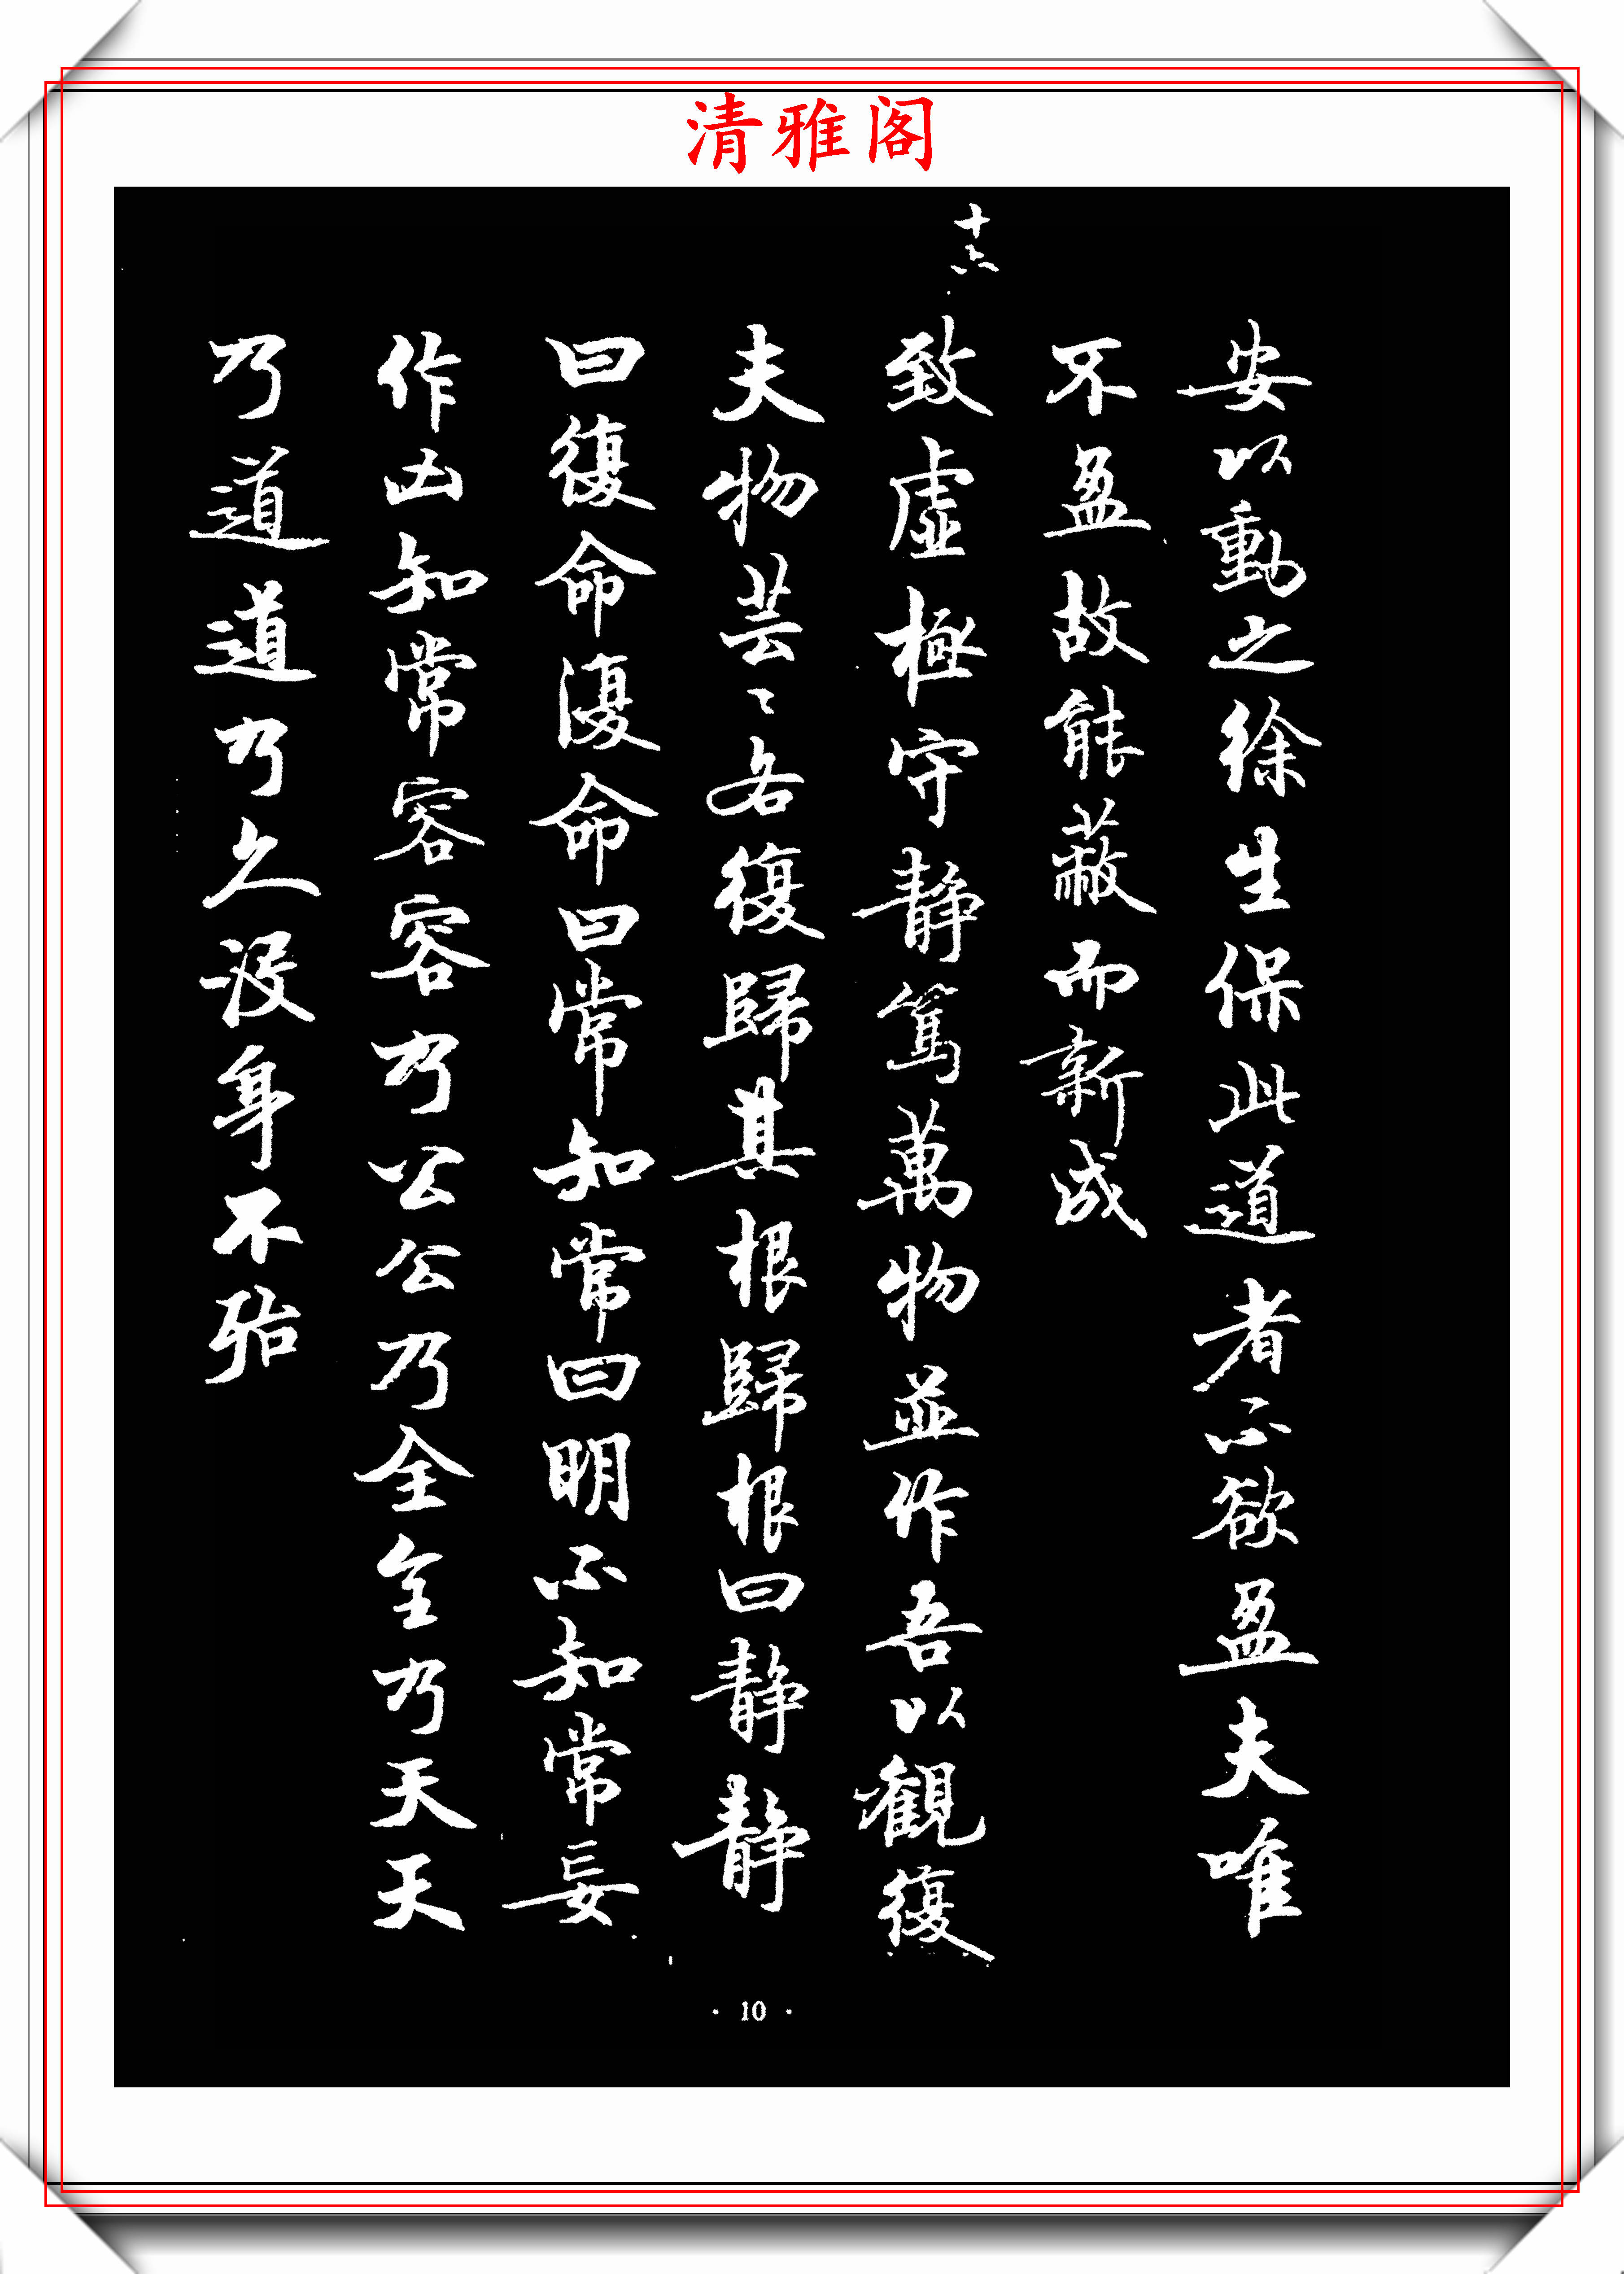 清雅阁
安以動之徐生保此道者不欲盈夫唯
不盈故能蔽而新成
十六
致虛極守静篤萬物並作吾以觀復
夫物芸〻各復歸其根歸根曰静静
曰復命復命曰常知常曰明不知常妄
作凶知常容容乃公公乃全全乃天天
乃道道乃久没身不殆
· 10 ·